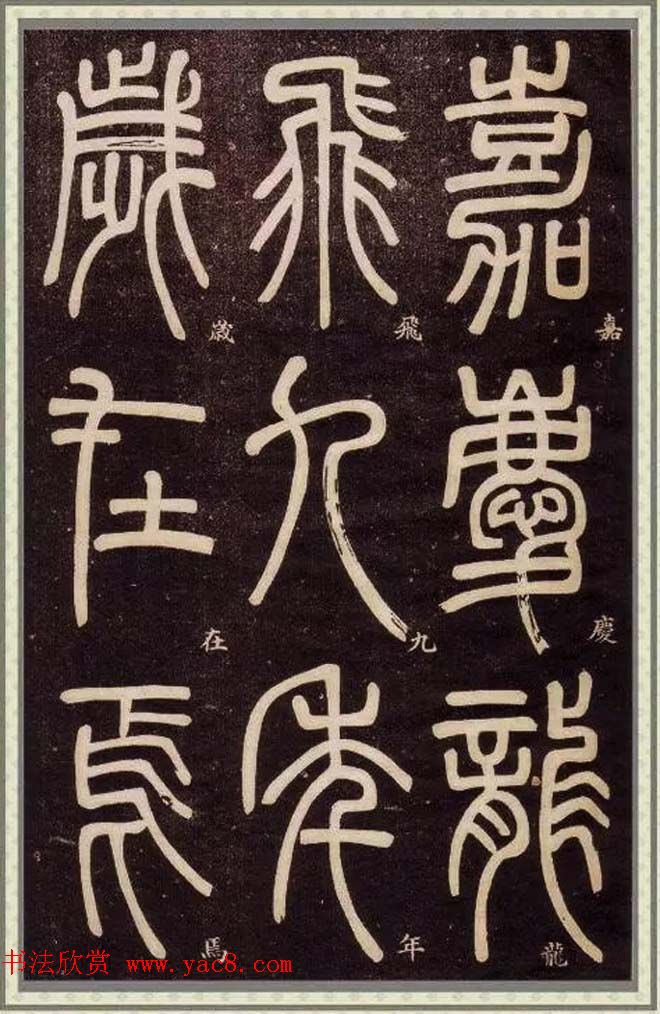 嘉慶龍
飛九年
歲在焉
嘉
慶
龍
飛
九
年
歲
在
焉
书法欣赏 www.yac8.com